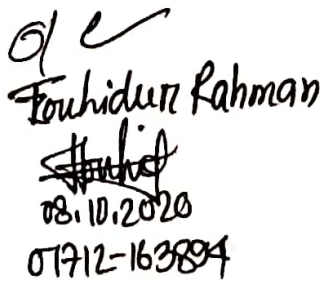 Touhidur Rahman
08.10.2020
01712-163894